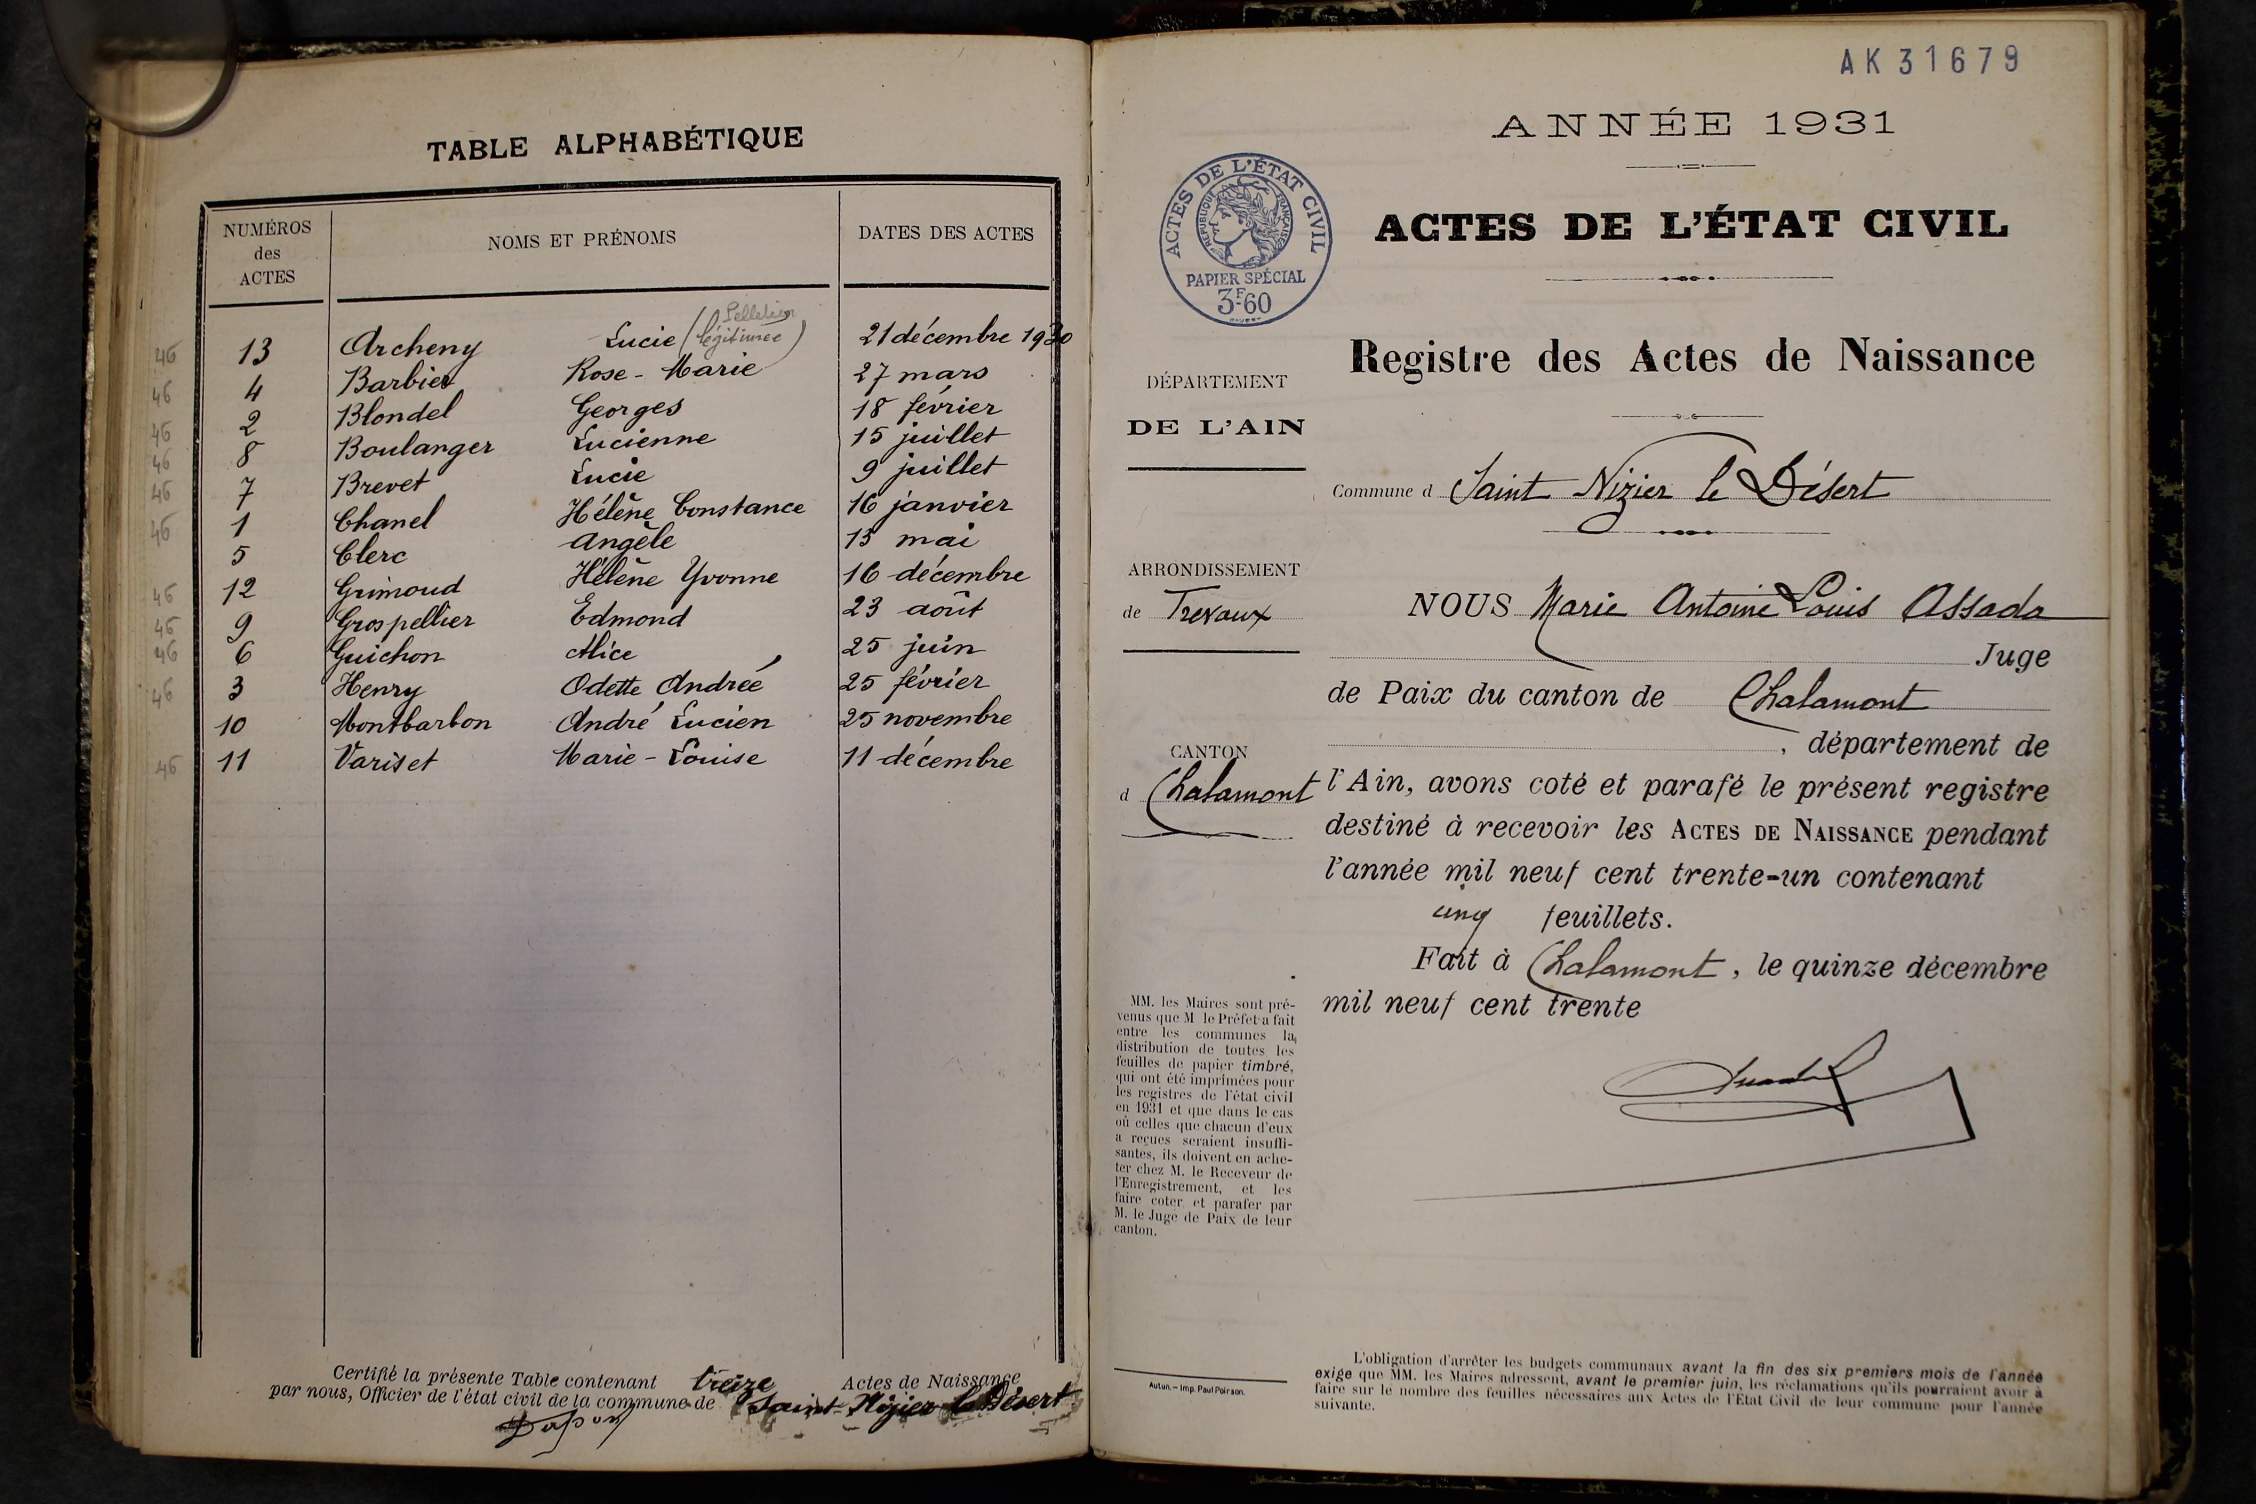 TABLE ALPHABÉTIQUE
NUMÉROS des ACTES
NOMS ET PRÉNOMS
DATES DES ACTES
46 13 Archeny Lucie (légitimée Pelletier) 21 décembre 1930
46 4 Barbier Rose-Marie 27 mars
46 2 Blondel Georges 18 février
46 8 Boulanger Lucienne 15 juillet
46 7 Brevet Lucie 9 juillet
46 1 Chanel Hélène Constance 16 janvier
5 Clerc Angèle 13 mai
46 12 Grimoud Hélène Yvonne 16 décembre
46 9 Grospellier Edmond 23 août
46 6 Guichon Alice 25 juin
46 3 Henry Odette Andrée 25 février
10 Montbarbon André Lucien 25 novembre
46 11 Variset Marie-Louise 11 décembre
Certifié la présente Table contenant treize Actes de Naissance
par nous, Officier de l'état civil de la commune de Saint-Nizier le Désert
AK 31679
ANNÉE 1931
ACTES DE L'ÉTAT CIVIL
RÉPUBLIQUE FRANÇAISE
PAPIER SPÉCIAL
3F60
ACTES DE L'ÉTAT CIVIL
Registre des Actes de Naissance
DÉPARTEMENT
DE L'AIN
Commune d Saint Nizier le Désert
ARRONDISSEMENT
de Trevoux
NOUS Marie Antoine Louis Assada
Juge
de Paix du canton de Chalamont
, département de
CANTON
d Chalamont
l'Ain, avons coté et parafé le présent registre
destiné à recevoir les ACTES DE NAISSANCE pendant
l'année mil neuf cent trente-un contenant
cinq feuillets.
Fait à Chalamont, le quinze décembre
mil neuf cent trente
MM. les Maires sont pré-
venus que M. le Préfet a fait
entre les communes la
distribution de toutes les
feuilles de papier timbré,
qui ont été imprimées pour
les registres de l'état civil
en 1931 et que dans le cas
où celles que chacun d'eux
a reçues seraient insuffi-
santes, ils doivent en ache-
ter chez M. le Receveur de
l'Enregistrement, et les
faire coter et parafer par
M. le Juge de Paix de leur
canton.
Autun. — Imp. Paul Poirson.
L'obligation d'arrêter les budgets communaux avant la fin des six premiers mois de l'année
exige que MM. les Maires adressent, avant le premier juin, les réclamations qu'ils pourraient avoir à
faire sur le nombre des feuilles nécessaires aux Actes de l'Etat Civil de leur commune pour l'année
suivante.